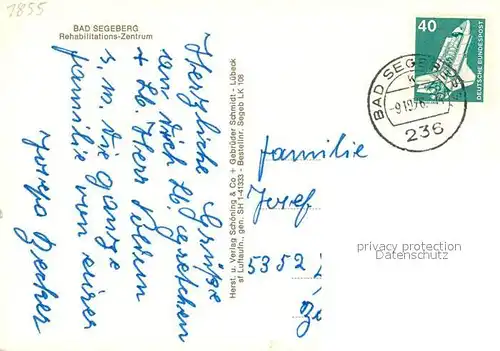 1855
BAD SEGEBERG
Rehabilitations-Zentrum
Herzliche Grüße
an Dich Lb. Gretchen
+ Lb. Herr
u. an die ganze
Familie von eurer
Becker
Herst. u. Verlag Schöning & Co + Gebrüder Schmidt - Lübeck
sf Luftaufn., gen. SH 1-41333 - Bestellnr. Segeb LK 108
40
DEUTSCHE BUNDESPOST
BAD SEGEBERG
236
Familie
Josef
5352
privacy protection
Datenschutz